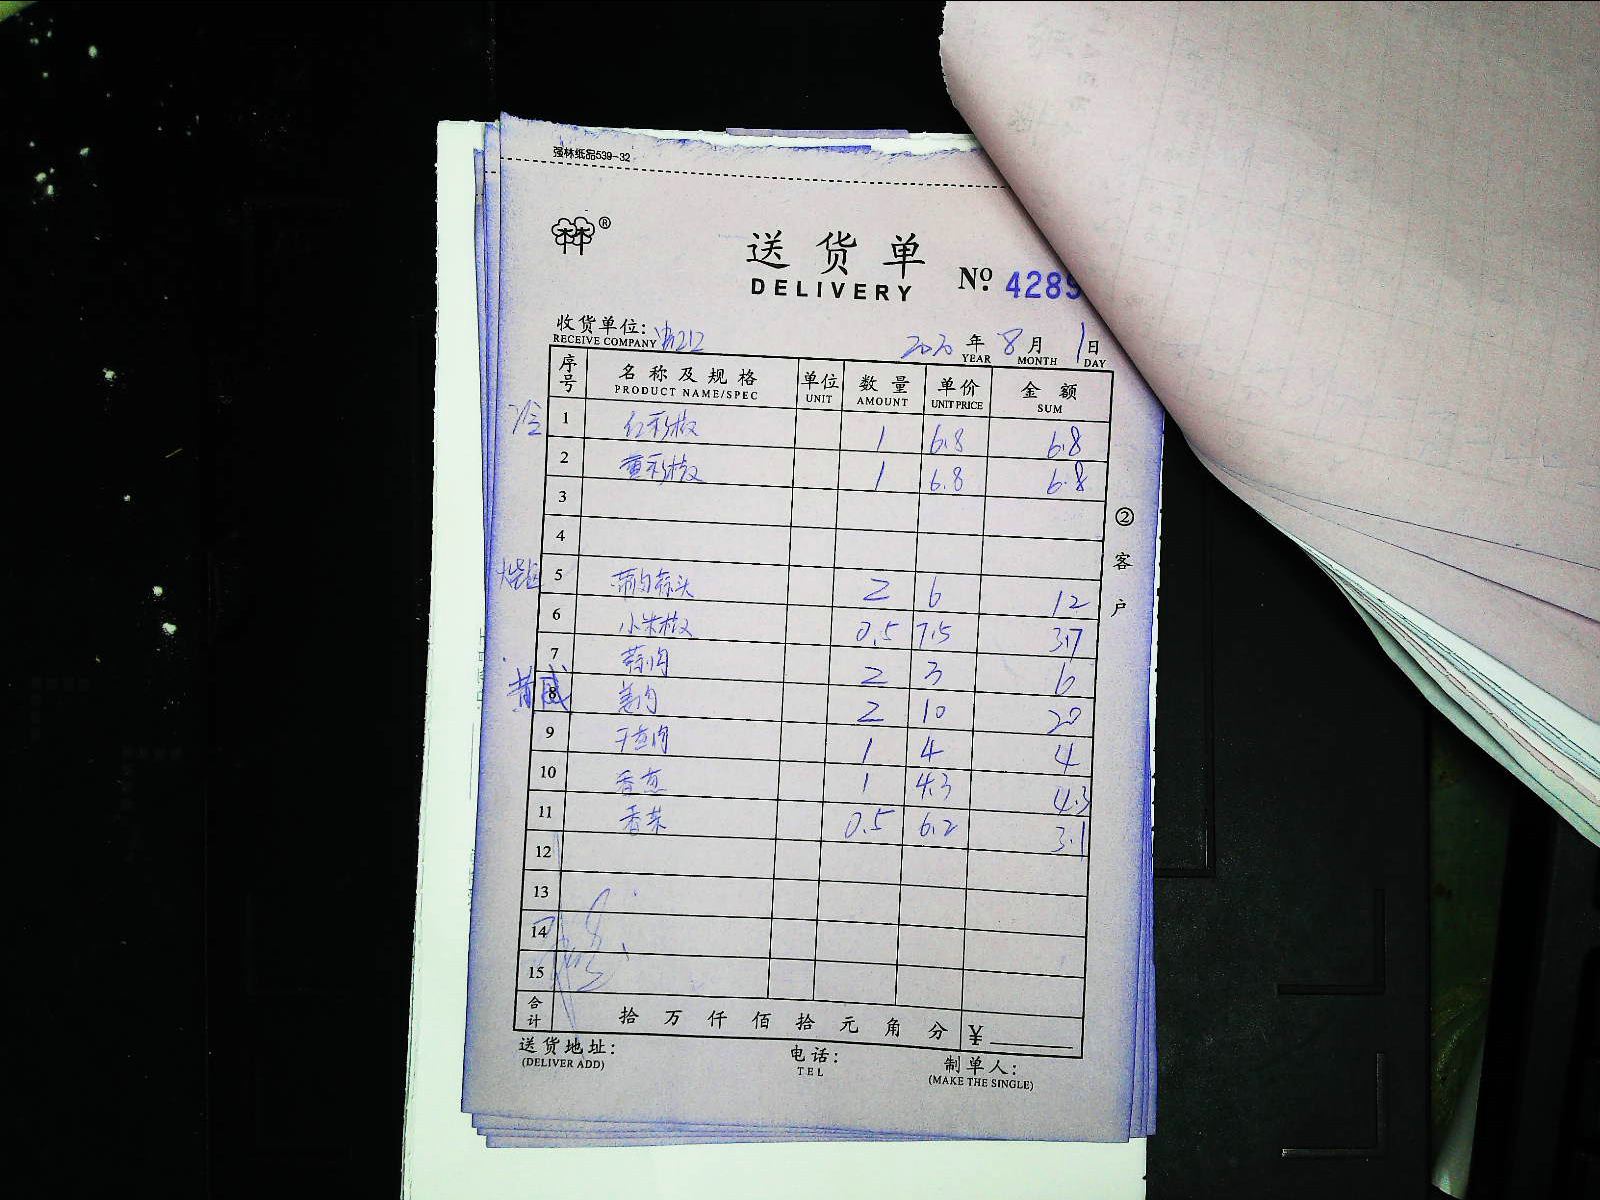 强林纸品539-32
®
送货单
DELIVERY
Nº 4289
收货单位: 212
RECEIVE COMPANY
2020 年 8 月 1 日
YEAR MONTH DAY
序号 名称及规格 单位 数量 单价 金额
PRODUCT NAME/SPEC UNIT AMOUNT UNIT PRICE SUM
1 红彩椒 1 6.8 6.8
2 黄彩椒 1 6.8 6.8
3
4
5 2 6 12
6 小米椒 0.5 7.5 3.7
7 蒜肉 2 3 6
8 姜肉 2 10 20
9 干葱肉 1 4 4
10 香葱 1 4.3 4.3
11 香菜 0.5 6.2 3.1
12
13
14
15
合计 拾万仟佰拾元角分 ¥
② 客户
送货地址: 电话: 制单人:
(DELIVER ADD) TEL (MAKE THE SINGLE)